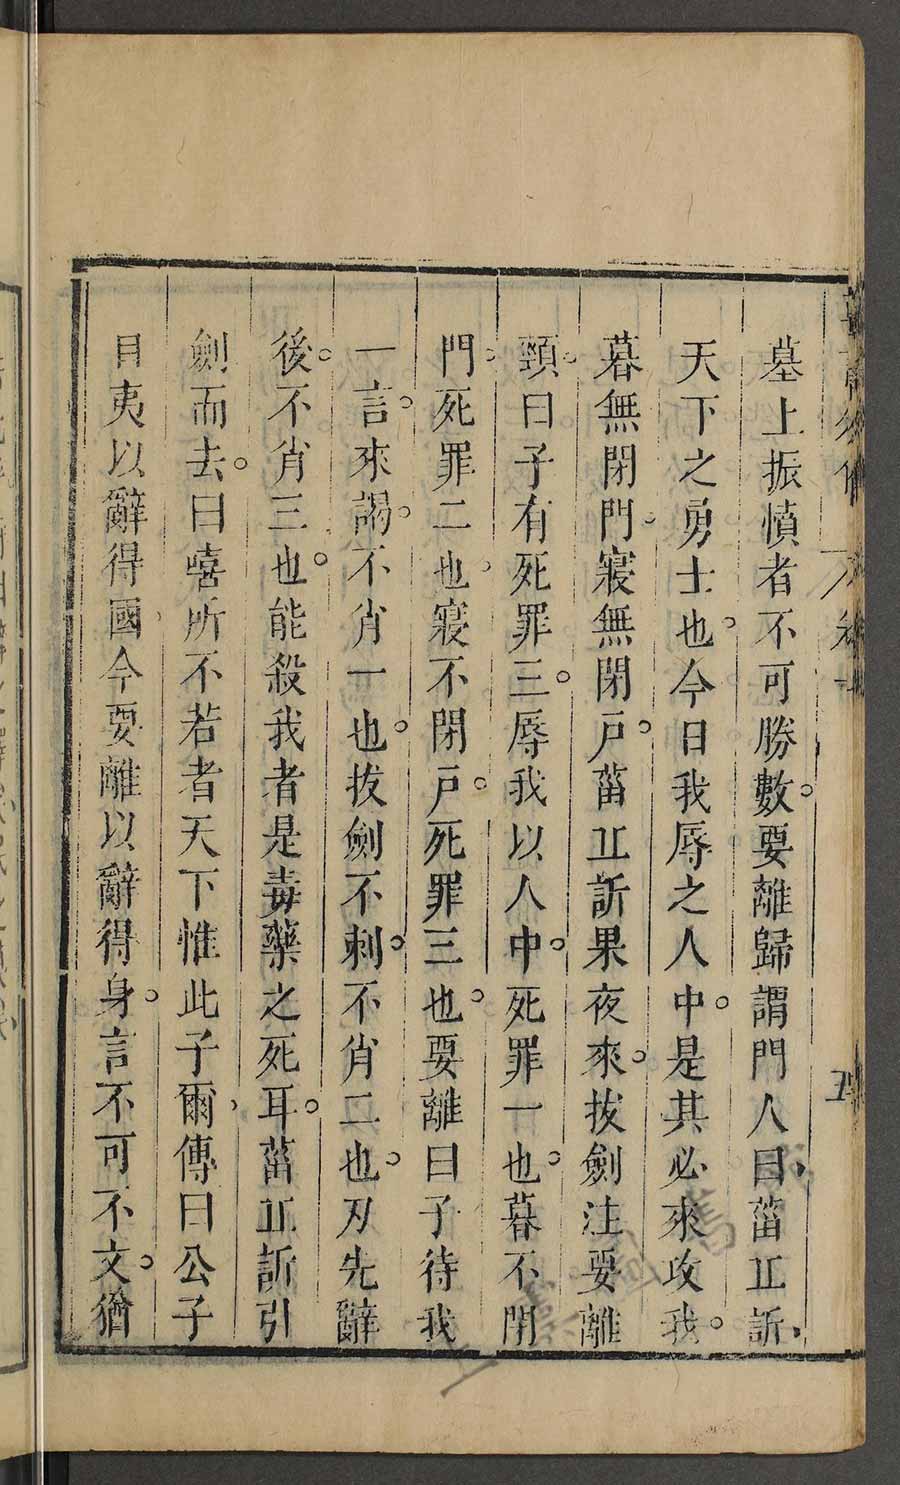 墓上振憤者不可勝數要離歸謂門人曰菑丠訢
天下之勇士也今日我辱之人中是其必來攻我
暮無閉門寢無閉戶菑丠訢果夜來拔劍注要離
頸曰子有死罪三辱我以人中死罪一也暮不閉
門死罪二也寢不閉戶死罪三也要離曰子待我
一言來謁不肖一也拔劍不刺不肖二也刃先辭
後不肖三也能殺我者是毒藥之死耳菑丠訢引
劍而去曰嘻所不若者天下惟此子爾傳曰公子
目夷以辭得國今要離以辭得身言不可不文猶